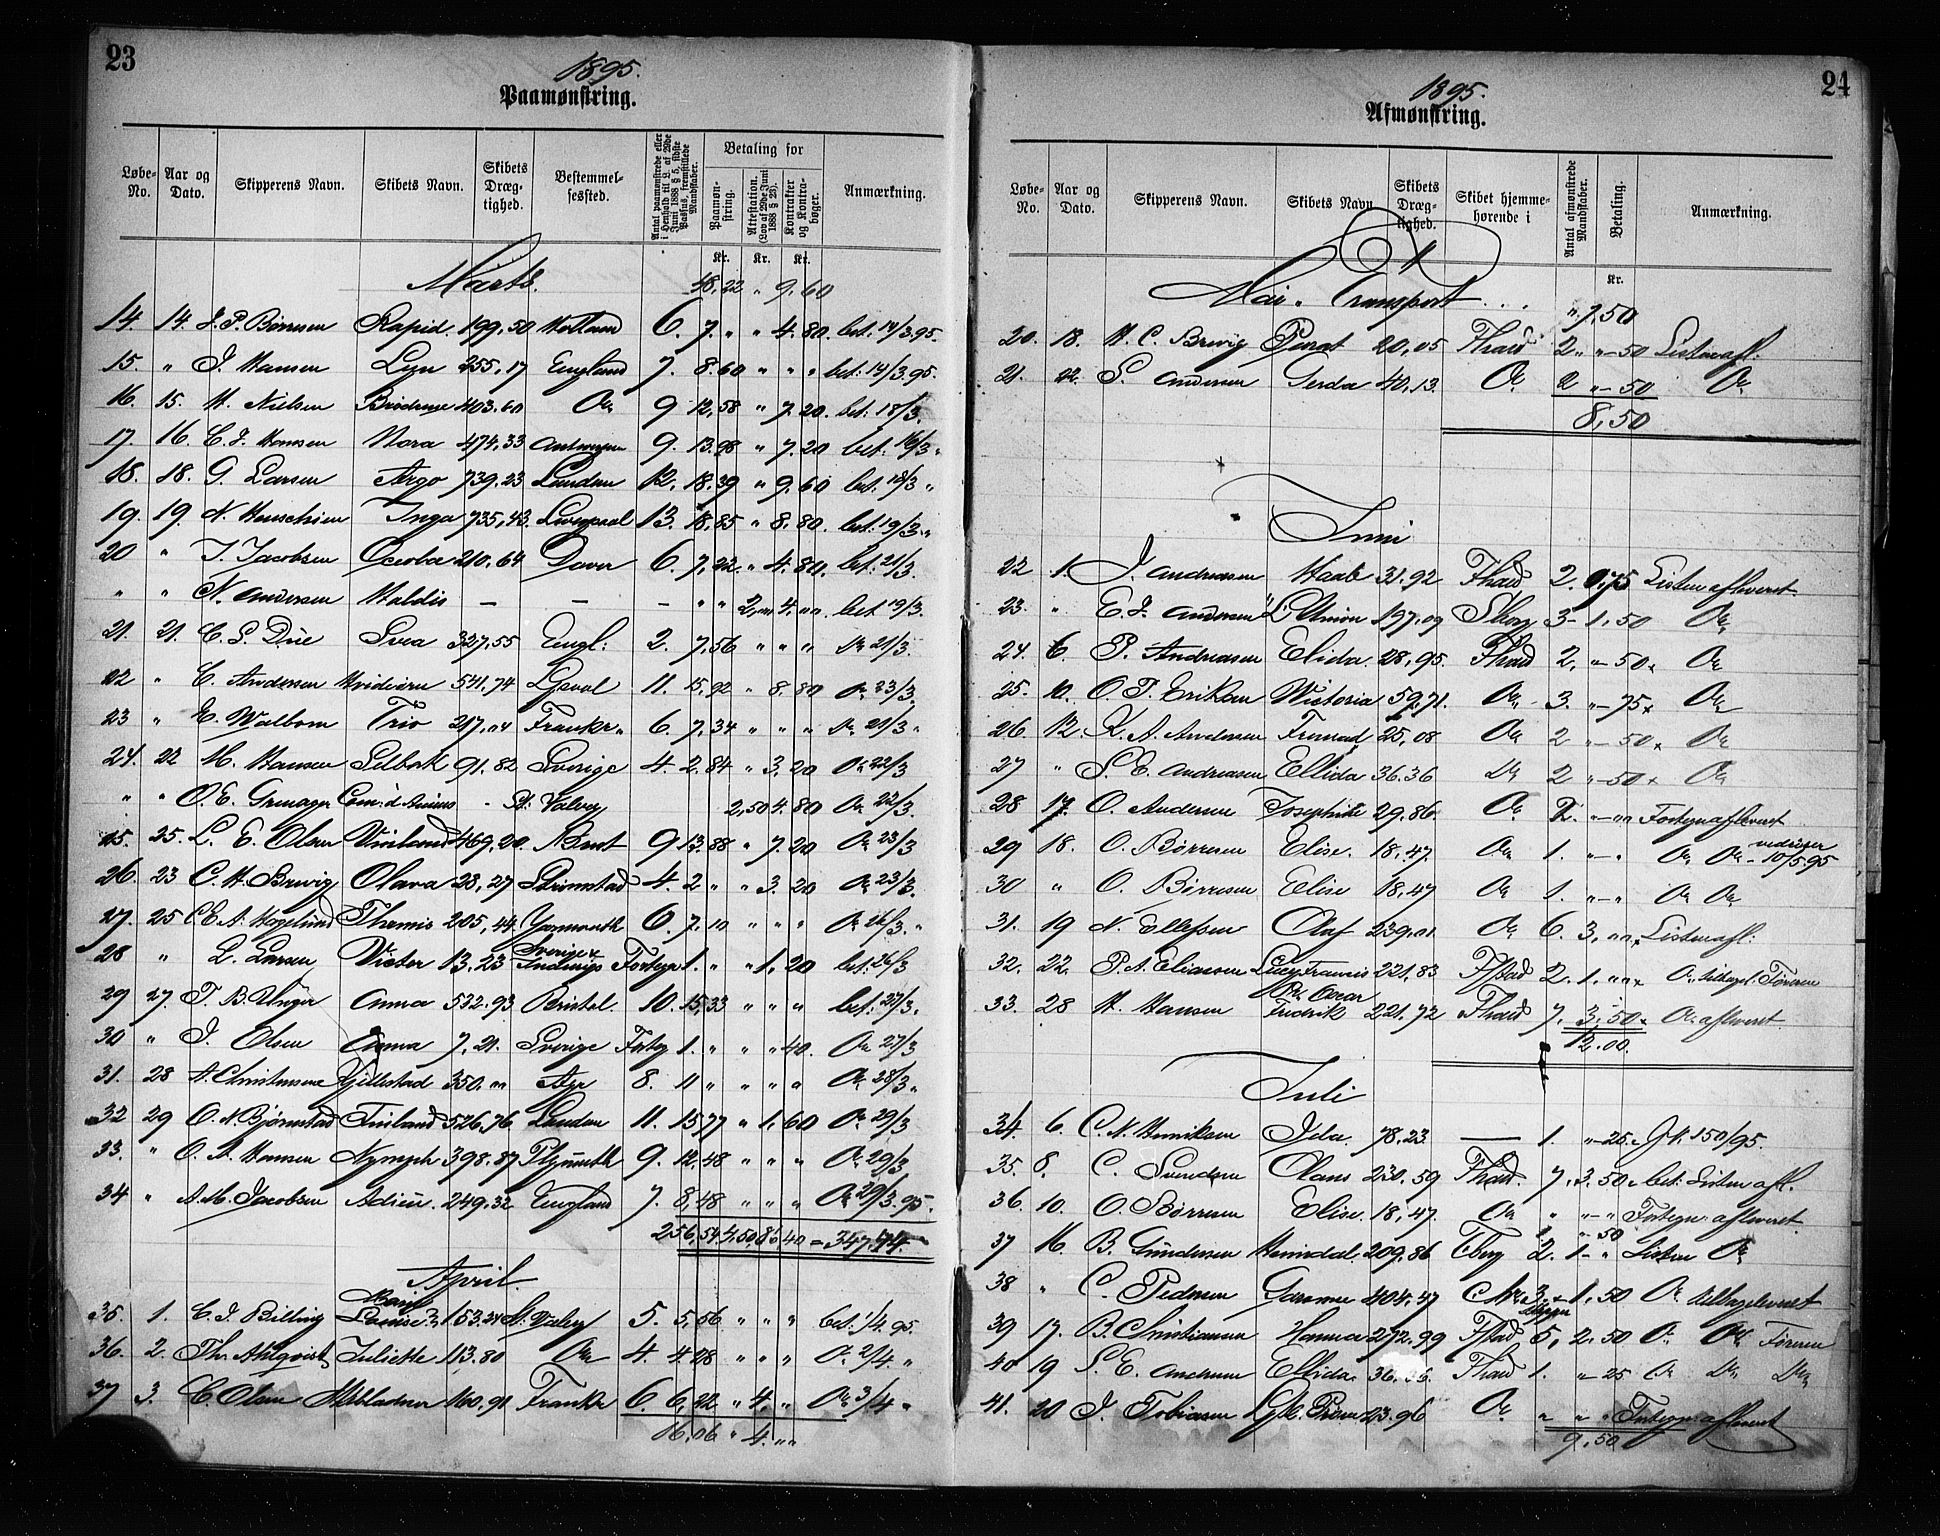 23
1895.
Paamønstring.
Løbe-No. Aar og Dato. Skipperens Navn. Skibets Navn. Skibets Dræg-tighed. Bestemmel-sessted. Antal paamønstrede eller i Henhold til L. af 29de Juni 1888 § 5, sidste Passus, fremstillede Mandskaber. Betaling for Paamøn-string. Attestation. (Lov af 29de Juni 1888 § 23). Kontrakter og Kontra-bøger. Anmærkning.
Kr. Kr. Kr.
Marts. 48,22 " 9,60
14. 14. J. P. Børresen Rapid 199,50 Holland 6. 7. " " 4.80. bet. 14/3.95.
15. " J. Hansen Lyn 255,17 England 7. 8.60 " " " bet. 14/3.95.
16. 15. H. Nielsen Brødrene 403.60 Do 9 12,58 " 7.20 bet. 18/3.
17. 16 C. J. Hansen Nora 474,33 Antwerpen 9. 13.98 " 7.20 bet. 16/3 "
18. 18. G. Larsen Argo 739.23 London 12. 18.39 " 9.60 bet. 18/3 "
19. 19. N. Henschien Inga 735,43. Liverpool 13. 18,85 " 8,80. bet. 19/3 "
20 " T. Jacobsen Oceola 210,64 Dover 6. 7,22 " 4.80. bet. 21/3.
" " N. Andersen Haldis — — — " " 2,00 4,00. bet 19/3.
21. 21. C. S. Due Svea 327,55 Engl: 2. 7,56 " " " Do 21/3.
22 " C. Andersen Hvideøren 541.74 Lpool 11. 15,92 " 8.80 Do 23/3.
23 " E. Walbom Trio 217,04 Frankr. 6. 7,34 " " " Do 21/3 "
24. 22 M. Hansen Selbak 91.82 Sverige 4. 2,84 " 3,20 Do 22/3
" " O. E. Gunager Com: d - St: Valery 2,50 4.80 Do 22/3.
25. 25. L. E. Olsen Vinland 469,20. 9. 13.88 " 7.20 Do 23/3
26. 23 C. H. Brevig Olava 28,27 Strömstad 4. 2 " " 3.20 Do 23/3.
27. 25 C E. A. Hagelund Themis 205,44 Yarmouth 6. 7,10 " " " Do 26/3. "
28 " L. Larsen Victor 13,23 Sverige & Indenrigs Fortegn 1. " " 1,20 bet. 26/3
29 27. T. B. Unger Anna 522.93 Bristol 10. 15,33 " " " bet. 27/3.
30 " J. Olsen Anna 7,21. Sverige Forteg 1. " " " 40. Do 27/3
31. 28 A. Christensen Gjellestad 350.00 Ayr 8. 11 " " " " Do 28/3 "
32 29 O. N. Bjørnstad Finland 526,76 London 11. 15,77 " 1,60 Do 29/3
33. " O. A. Hansen Nymph 398.87 Plymouth 9. 12,48 " " " Do 29/3
34 " A. M. Jacobsen Adieu 249.32 England 7. 8,48 " " " Do 29/3.95.
256,54. 4,50, 86,40 = 347,44
April.
35. 1. C. J. Billing Marie Louise 153.24 St. Valery 5. 5,06 " " " bet. 1/4.95.
36. 2. Th. Ahlqvist Juliette 113.80 Do 4. 4.28 " " " Do 2/4 "
37 3. C. Olsen 160.91 Frankr 6. 6,22 " 4. " Do 3/4 "
16,06 " 4.00
24
1895.
Afmønstring.
Løbe-No. Aar og Dato. Skipperens Navn. Skibets Navn. Skibets Dræg-tighed. Skibet hjemme-hørende i Antal afmønstrede Mandskaber. Betaling. Anmærkning.
Kr.
Mai. Transport . . . " 7,50
20. 18. H. C. Brevig Parat 20,05 Fhald 2. " - 50 Listen afl:
21. 22. S. Andersen Gerda 40,13. Do 2 " - 50 Do
8,50
Juni
22 1. J. Andreasen Haab 31,92 Fhald 2. 0,75 Listen afleveret.
23. " E. J. Andersen L'Union 197,09 Sborg 3 - 1,50 Do
24. 6. P. Andreasen Elida 28,95. Fhald 2. " - 50 x Do
25. 10. O. T. Eriksen Victoria 59.71. Do 3. " - 75 x Do
26. 12. K. A. Andersen Fremad 25,08 Do 2 " - 50 x Do
27 " S. E. Andreasen Ellida 36.36 Do 2 " - 50 x Do
28 17. O. Andersen Josephine 29.86. Do 2. " - 00 Fortegn afleveret
29 18. O. Børresen Elise. 18,47 Do 1. " - " Do Do vedrører 10/5 95
30 " O. Børresen Elise 18,47 Do 1. " - " Do Do
31. 19 N. Ellefsen Olaf 239.01 Do 6. 3,00 x Listen afl:
32. 22. P. A. Eliassen Lucy Francis 221,83 Fstad 2. 1.00 x Do tilbagel. Føreren
33. 28 H. Hansen Pr. Oscar Fredrik 221,72 Fhald 7. 3,50 x Do afleveret.
12.00.
Juli
34. 6. C. N. Henriksen Ida 78.23 — 1. " - 25. J N. 150/95.
35. 8. C. Svendsen Olaus 230.59 Fhald. 7. 3.50 bet. Listen afl.
36. 10. O. Børresen Elise. 18,47. Do " " - " Fortegn. afleveret.
37 16. B. Gundersen Heimdal 209,86 Tbrg 2. 1 - " 50 Listen Do
38 " C. Pedersen Garonne 404.47 3. x 1,50 Do tilbageleveret
39 17. B. Christiansen Hanna 272.99 Fstad 5, 2.50 Do Do Føreren
40 19 S. E. Andersen Ellida 36 Fhald 1. " - 25 Do Do Do
41. 20 J. Tobiasen 23.96 Do " " " Fortegn. afleveret
9.50